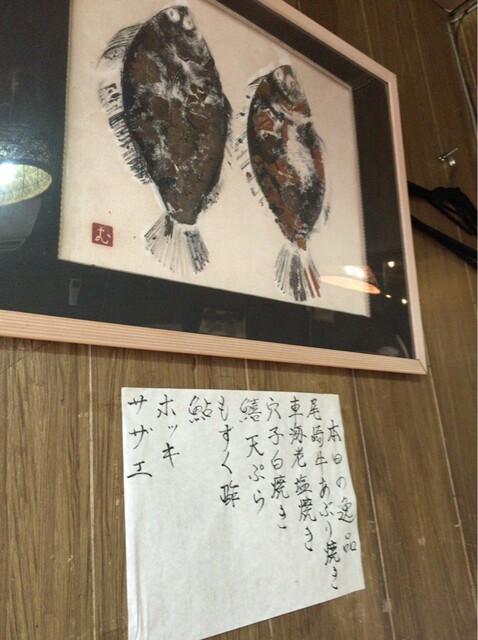 む
本日の逸品
尾崎牛あぶり焼き
車海老塩焼き
穴子白焼き
鱚天ぷら
もずく酢
鮎
ホッキ
サザエ